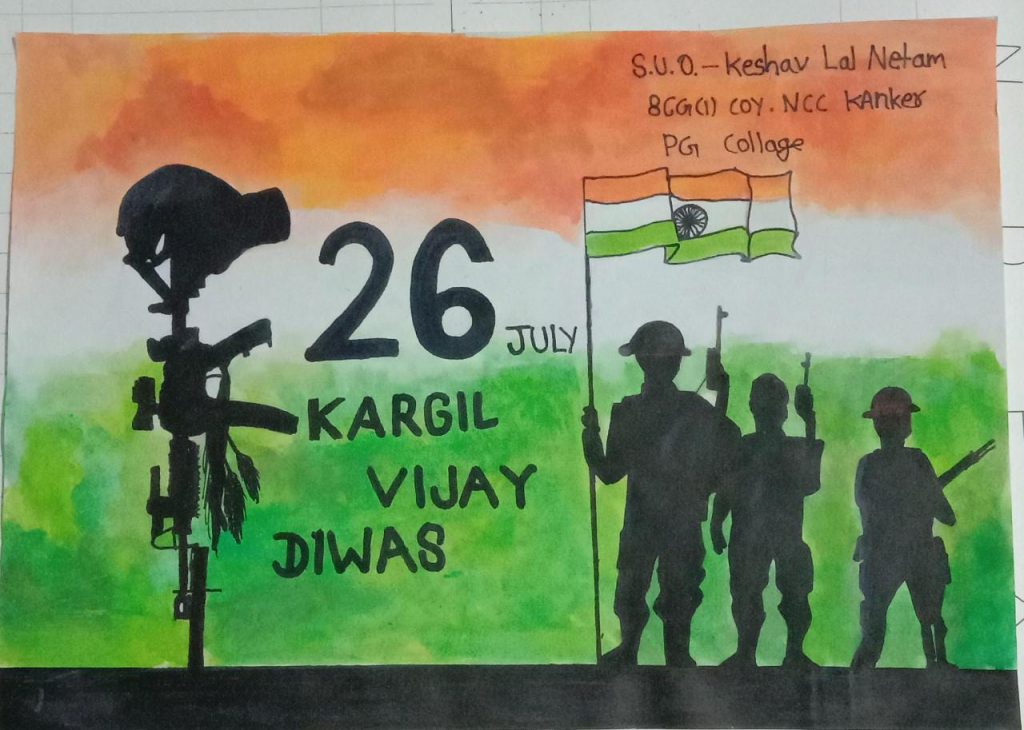 S.U.O. – Keshav Lal Netam
8CG(1) COY. NCC kAnker
PG Collage
26 JULY
KARGIL
VIJAY
DIWAS